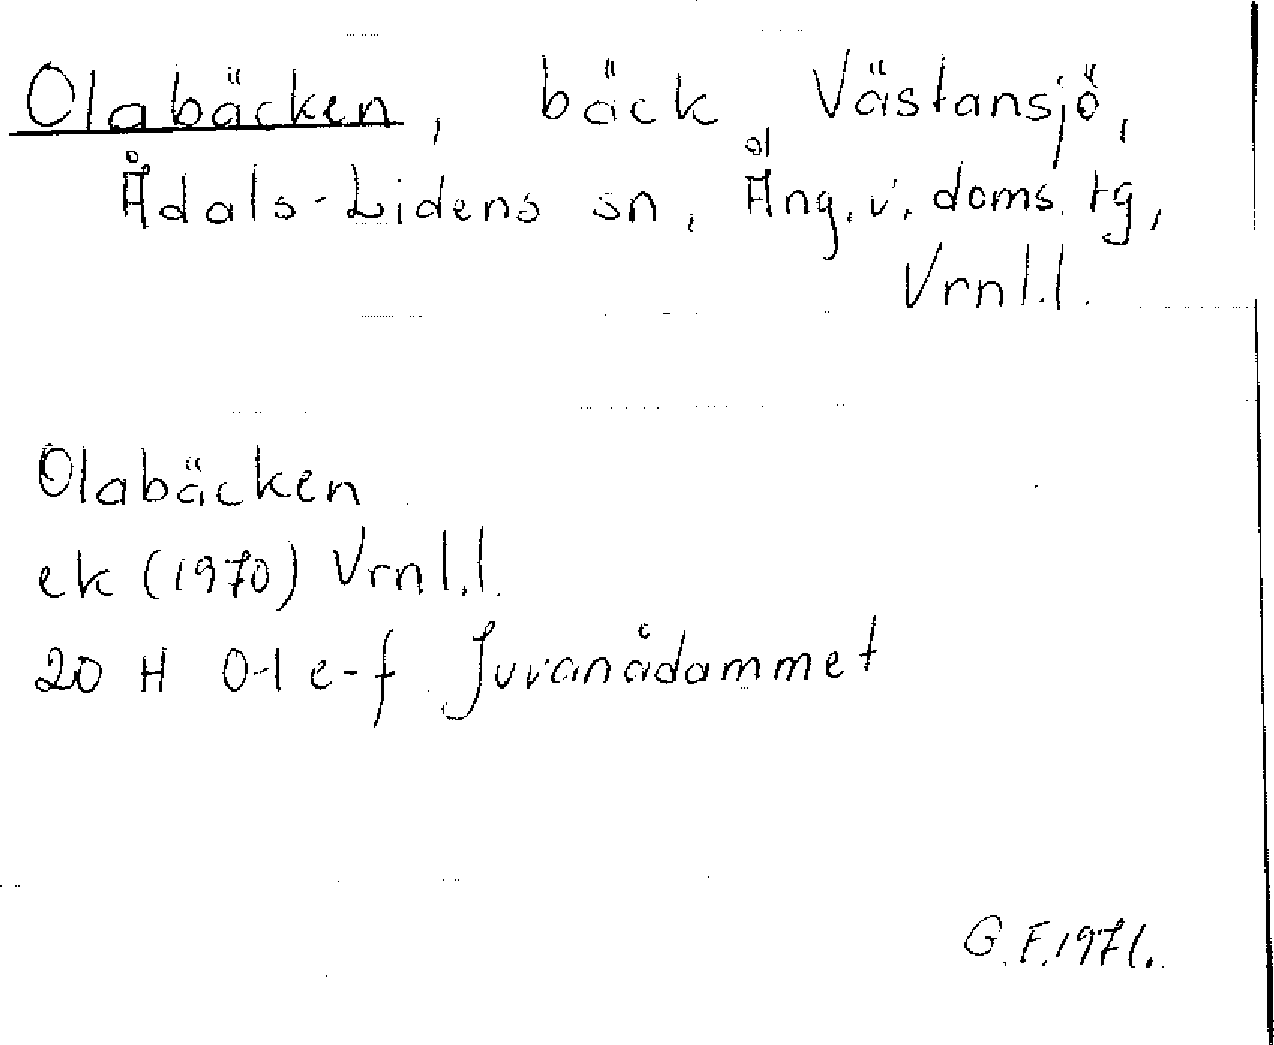 Olabäcken, bäck Västansjö,
Ådals-Lidens sn, Ång. v. doms. tg,
Vrnl.l.
Olabäcken
ek (1970) Vrnl.l.
20 H 0-1 e-f Juvanådammet
G.F. 1971.